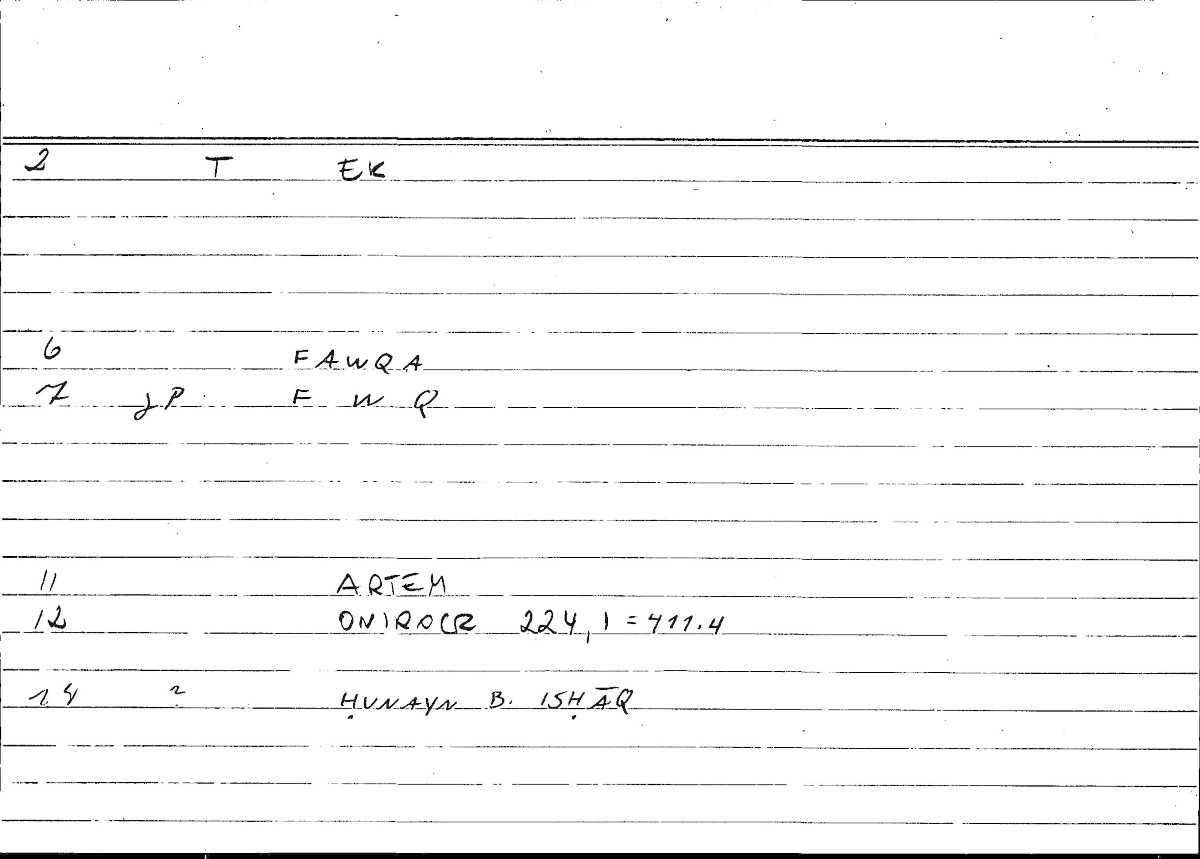 2 T EK
6 FAWQA
7 JP F W Q
11 ARTEM
12 ONIROCR 224,1=411.4
14 2 ḤUNAYN B. ISḤĀQ